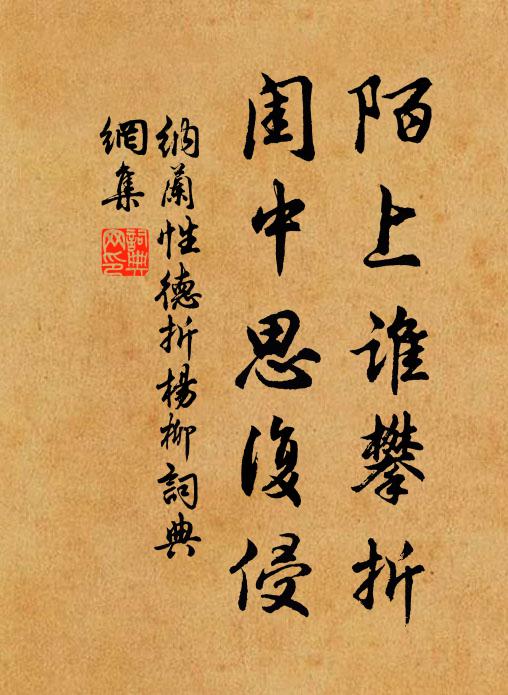 陌上谁攀折
闺中思復侵
纳蘭性德折楊柳詞典
網集
詞典
网印